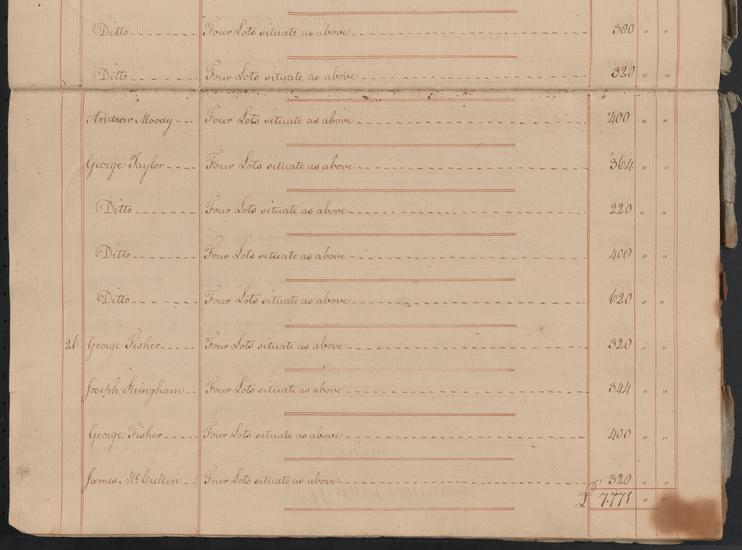 Ditto Four Lots situate as above 300 " "
Ditto Four Lots situate as above 320 " "
Andrew Moody Four Lots situate as above 400 " "
George Taylor Four Lots situate as above 364 " "
Ditto Four Lots situate as above 220 " "
Ditto Four Lots situate as above 400 " "
Ditto Four Lots situate as above 620 " "
26 George Fisher Four Lots situate as above 320 " "
Joseph Four Lots situate as above 344 " "
George Fisher Four Lots situate as above 400 " "
James McCullen Four Lots situate as above 320 " "
£ "